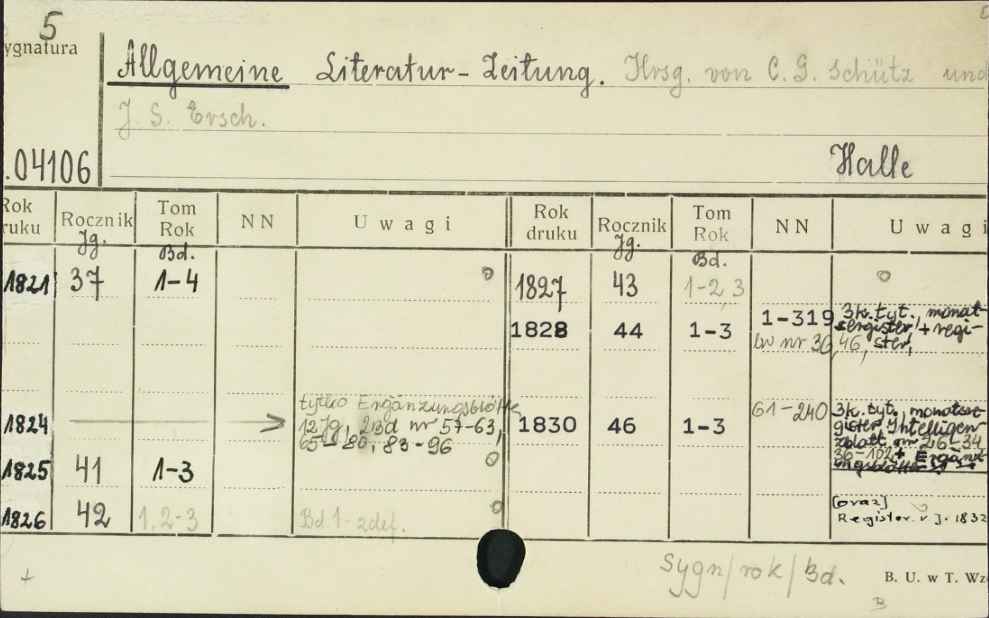 5
ygnatura
Allgemeine Literatur-Zeitung. Hrsg. von C. G. Schütz und
J. S. Ersch.
.04106
Halle
Rok ruku Rocznik Jg. Tom Rok Bd. NN Uwagi Rok druku Rocznik Jg. Tom Rok Bd. NN Uwagi
1821 37 1-4 1827 43 1-2,3
1828 44 1-3 1-319 3k. tyt., monat-
sregister, + regi-
bw nr 36, 46, ster,
1824 > tylko Ergänzungsblätte
12 Jg, 2 Bd nr 57-63,
65-80, 83-96
1830 46 1-3 61-240 3k. tyt., monatsre
gister, Intelligen
zblatt nr 26-34
36-102 + Ergänz
ungsblätter
1825 41 1-3
1826 42 1,2-3 Bd. 1 - zdef.
[oraz]
Register. v J. 1832
Sygn/rok/Bd.
B. U. w T. Wz
B